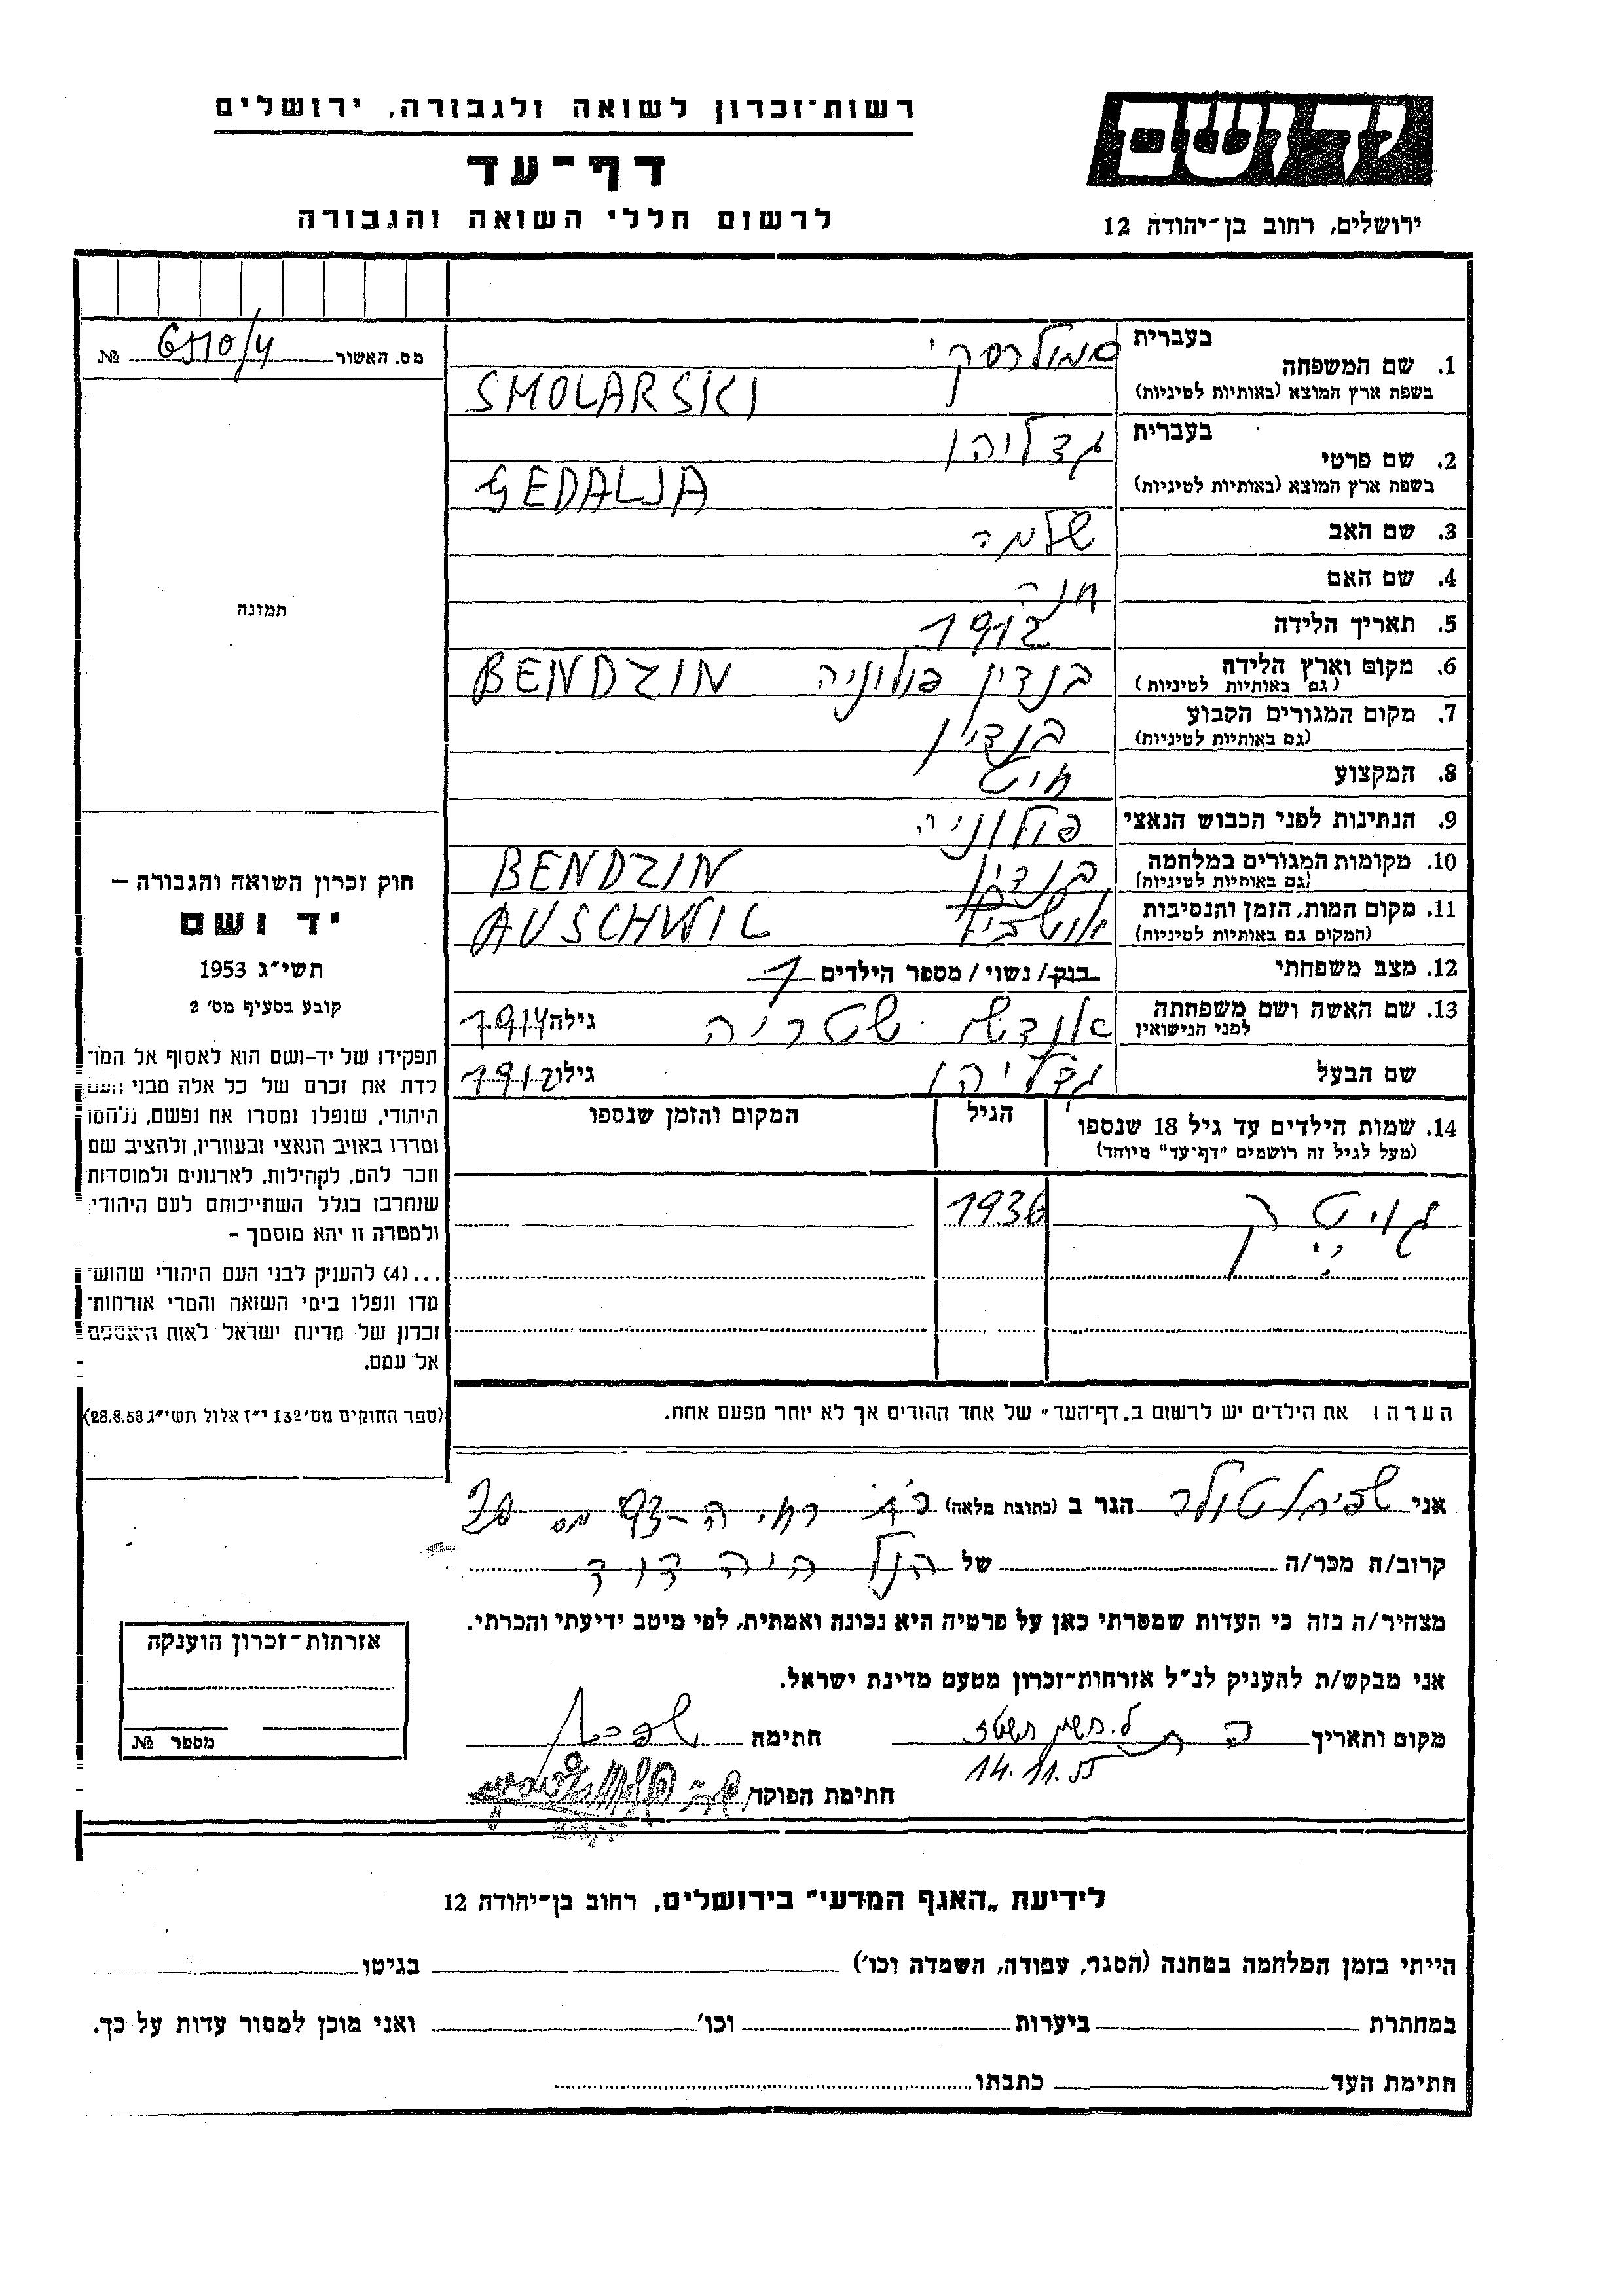 רשות־זכרון לשואה ולגבורה, ירושלים
דף־עד
לרשום חללי השואה והגבורה
יד ושם
ירושלים, רחוב בן־יהודה 12
מס. האשור № 6510/4
בעברית סמולרסקי
1. שם המשפחה
בשפת ארץ המוצא (באותיות לטיניות) SMOLARSKI
בעברית גדליהו
2. שם פרטי
בשפת ארץ המוצא (באותיות לטיניות) GEDALJA
3. שם האב שלמה
4. שם האם חנה
5. תאריך הלידה 1912
6. מקום וארץ הלידה בנדין פולוניה BENDZIN
(גם באותיות לטיניות)
7. מקום המגורים הקבוע בנדין
(גם באותיות לטיניות)
8. המקצוע חיט
9. הנתינות לפני הכבוש הנאצי פולוניה
10. מקומות המגורים במלחמה בנדין BENDZIN
(גם באותיות לטיניות)
11. מקום המות, הזמן והנסיבות AUSCHWIC
(המקום גם באותיות לטיניות)
12. מצב משפחתי רווק / נשוי / מספר הילדים 1
13. שם האשה ושם משפחתה גילה 1914
לפני הנישואין
שם הבעל גדליהו גילו 1912
14. שמות הילדים עד גיל 18 שנספו הגיל המקום והזמן שנספו
(מעל לגיל זה רושמים "דף־עד" מיוחד)
1936
הערה: את הילדים יש לרשום ב„דף־העד" של אחד ההורים אך לא יותר מפעם אחת.
תמונה
חוק זכרון השואה והגבורה –
יד ושם
תשי"ג 1953
קובע בסעיף מס' 2
תפקידו של יד־ושם הוא לאסוף אל המו־
לדת את זכרם של כל אלה מבני העם
היהודי, שנפלו ומסרו את נפשם, נלחמו
ומרדו באויב הנאצי ובעוזריו, ולהציב שם
וזכר להם, לקהילות, לארגונים ולמוסדות
שנחרבו בגלל השתייכותם לעם היהודי
ולמטרה זו יהא מוסמך –
...(4) להעניק לבני העם היהודי שהוש־
מדו ונפלו בימי השואה והמרי אזרחות־
זכרון של מדינת ישראל לאות היאספם
אל עמם.
(ספר החוקים מס' 132 י"ז אלול תשי"ג 28.8.53)
אני הגר ב (כתובת מלאה)
קרוב/ה מכר/ה של הנ"ל היה דוד
מצהיר/ה בזה כי העדות שמסרתי כאן על פרטיה היא נכונה ואמתית, לפי מיטב ידיעתי והכרתי.
אני מבקש/ת להעניק לנ"ל אזרחות־זכרון מטעם מדינת ישראל.
מקום ותאריך חתימה
14.11.55
חתימת הפוקד
אזרחות־זכרון הוענקה
מספר №
לידיעת „האגף המדעי" בירושלים, רחוב בן־יהודה 12
הייתי בזמן המלחמה במחנה (הסגר, עבודה, השמדה וכו') בגיטו
במחתרת ביערות וכו' ואני מוכן למסור עדות על כך.
חתימת העד כתבתו